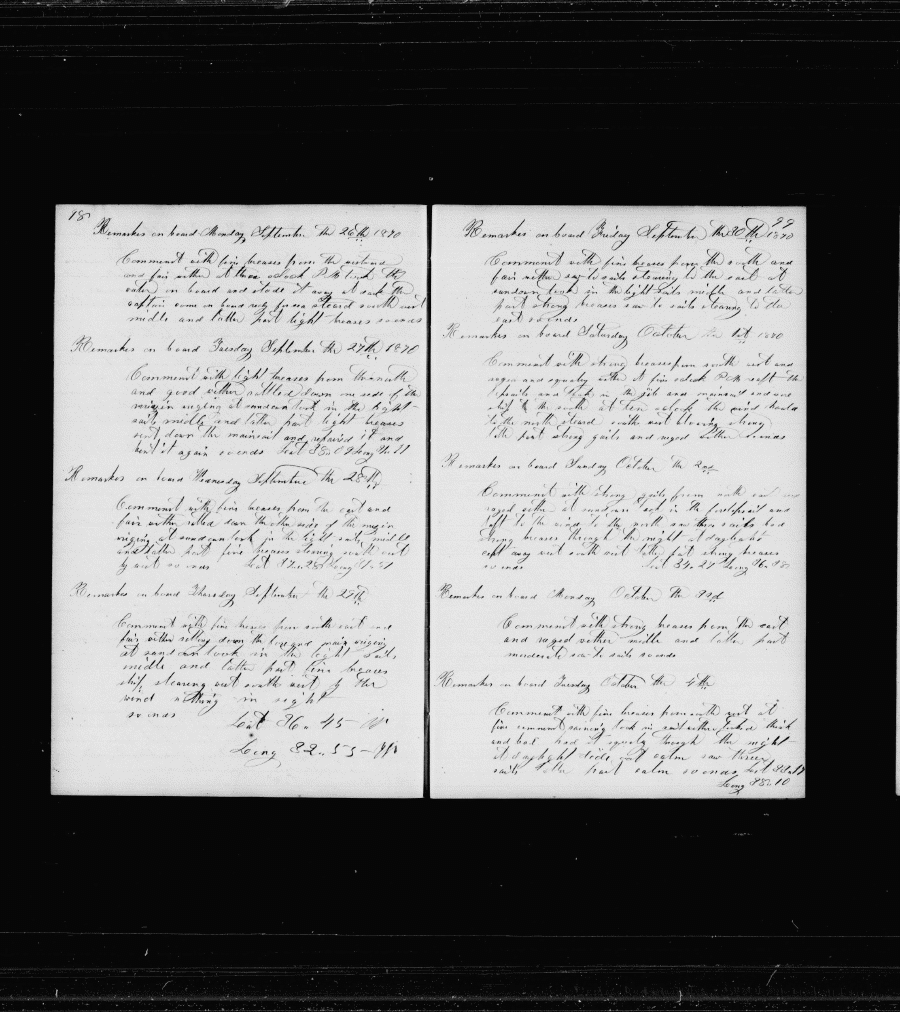 18
Remarkes on board Monday September the 26th 1870
Commenct with fine breases from the
and fair wether At three oclock P M took the
on board and stode it away at the
captain come on board sea steard south west
midle and latter part light breases so ends
Remarkes on board Tuesday September the 27th 1870
Commenct with light breases from the south
and good wether rattled down one side of the
rigging at sundown took in the light
sails midle and latter part light breases
sent down the mainsail and repaired it and
bent it again so ends Lat Long
Remarkes on board Wednesday September the 28th
Commenct with fine breases from the east and
fair wether ratled down the other side of the
riging at sundown took in the light sails midle
and latter part fine breases stearing south west
by west so ends Lat Long
Remarkes on board Thursday September the 29th
Comment with fine breases from south east and
fair wether ratling down the fore and main riging
at sundown took in the light sails
midle and latter part fine breases
ship stearing west south west by the
wind nothing in sight
so ends
Lat 36 - 45 - N
Long 32 - 53 - W
Remarkes on board Friday September the 30th 1870
Commenct with fine breases from the south and
fair wether saw to sails stearing to the east at
sundown took in the light sails midle and latter
part strong breases saw to sails stearing to the
east so ends
Remarkes on board Saturday October the 1st 1870
Commenct with strong breases from south west and
and squaly wether At five oclock P M reeft the
topsails and took in the jib and mainsail and
ship to the south at ten oclock the wind hauld
to the north steard south west blowing strong
latter part strong gails and ruged wether so ends
Remarkes on board Sunday October the 2nd
Commenct with strong gails from north east and
ruged wether at sundown took in the foretopsail and
luft to the wind to the north saw three sails had
strong breases through the night at daylight
kept away west south west latter part strong breases
so ends Lat 34 - 27 Long 36 - 38
Remarkes on board Monday October the 3rd
Commenct with strong breases from the east
and ruged wether midle and latter part
moderate saw to sails so ends
Remarkes on board Tuesday October the 4th
Commenct with fine breases from north west at
five comenct raining took in sail wether looked thick
and bad had it squaly through the night
at daylight calm saw three
sails latter part calm so ends Lat
Long 38 - 10